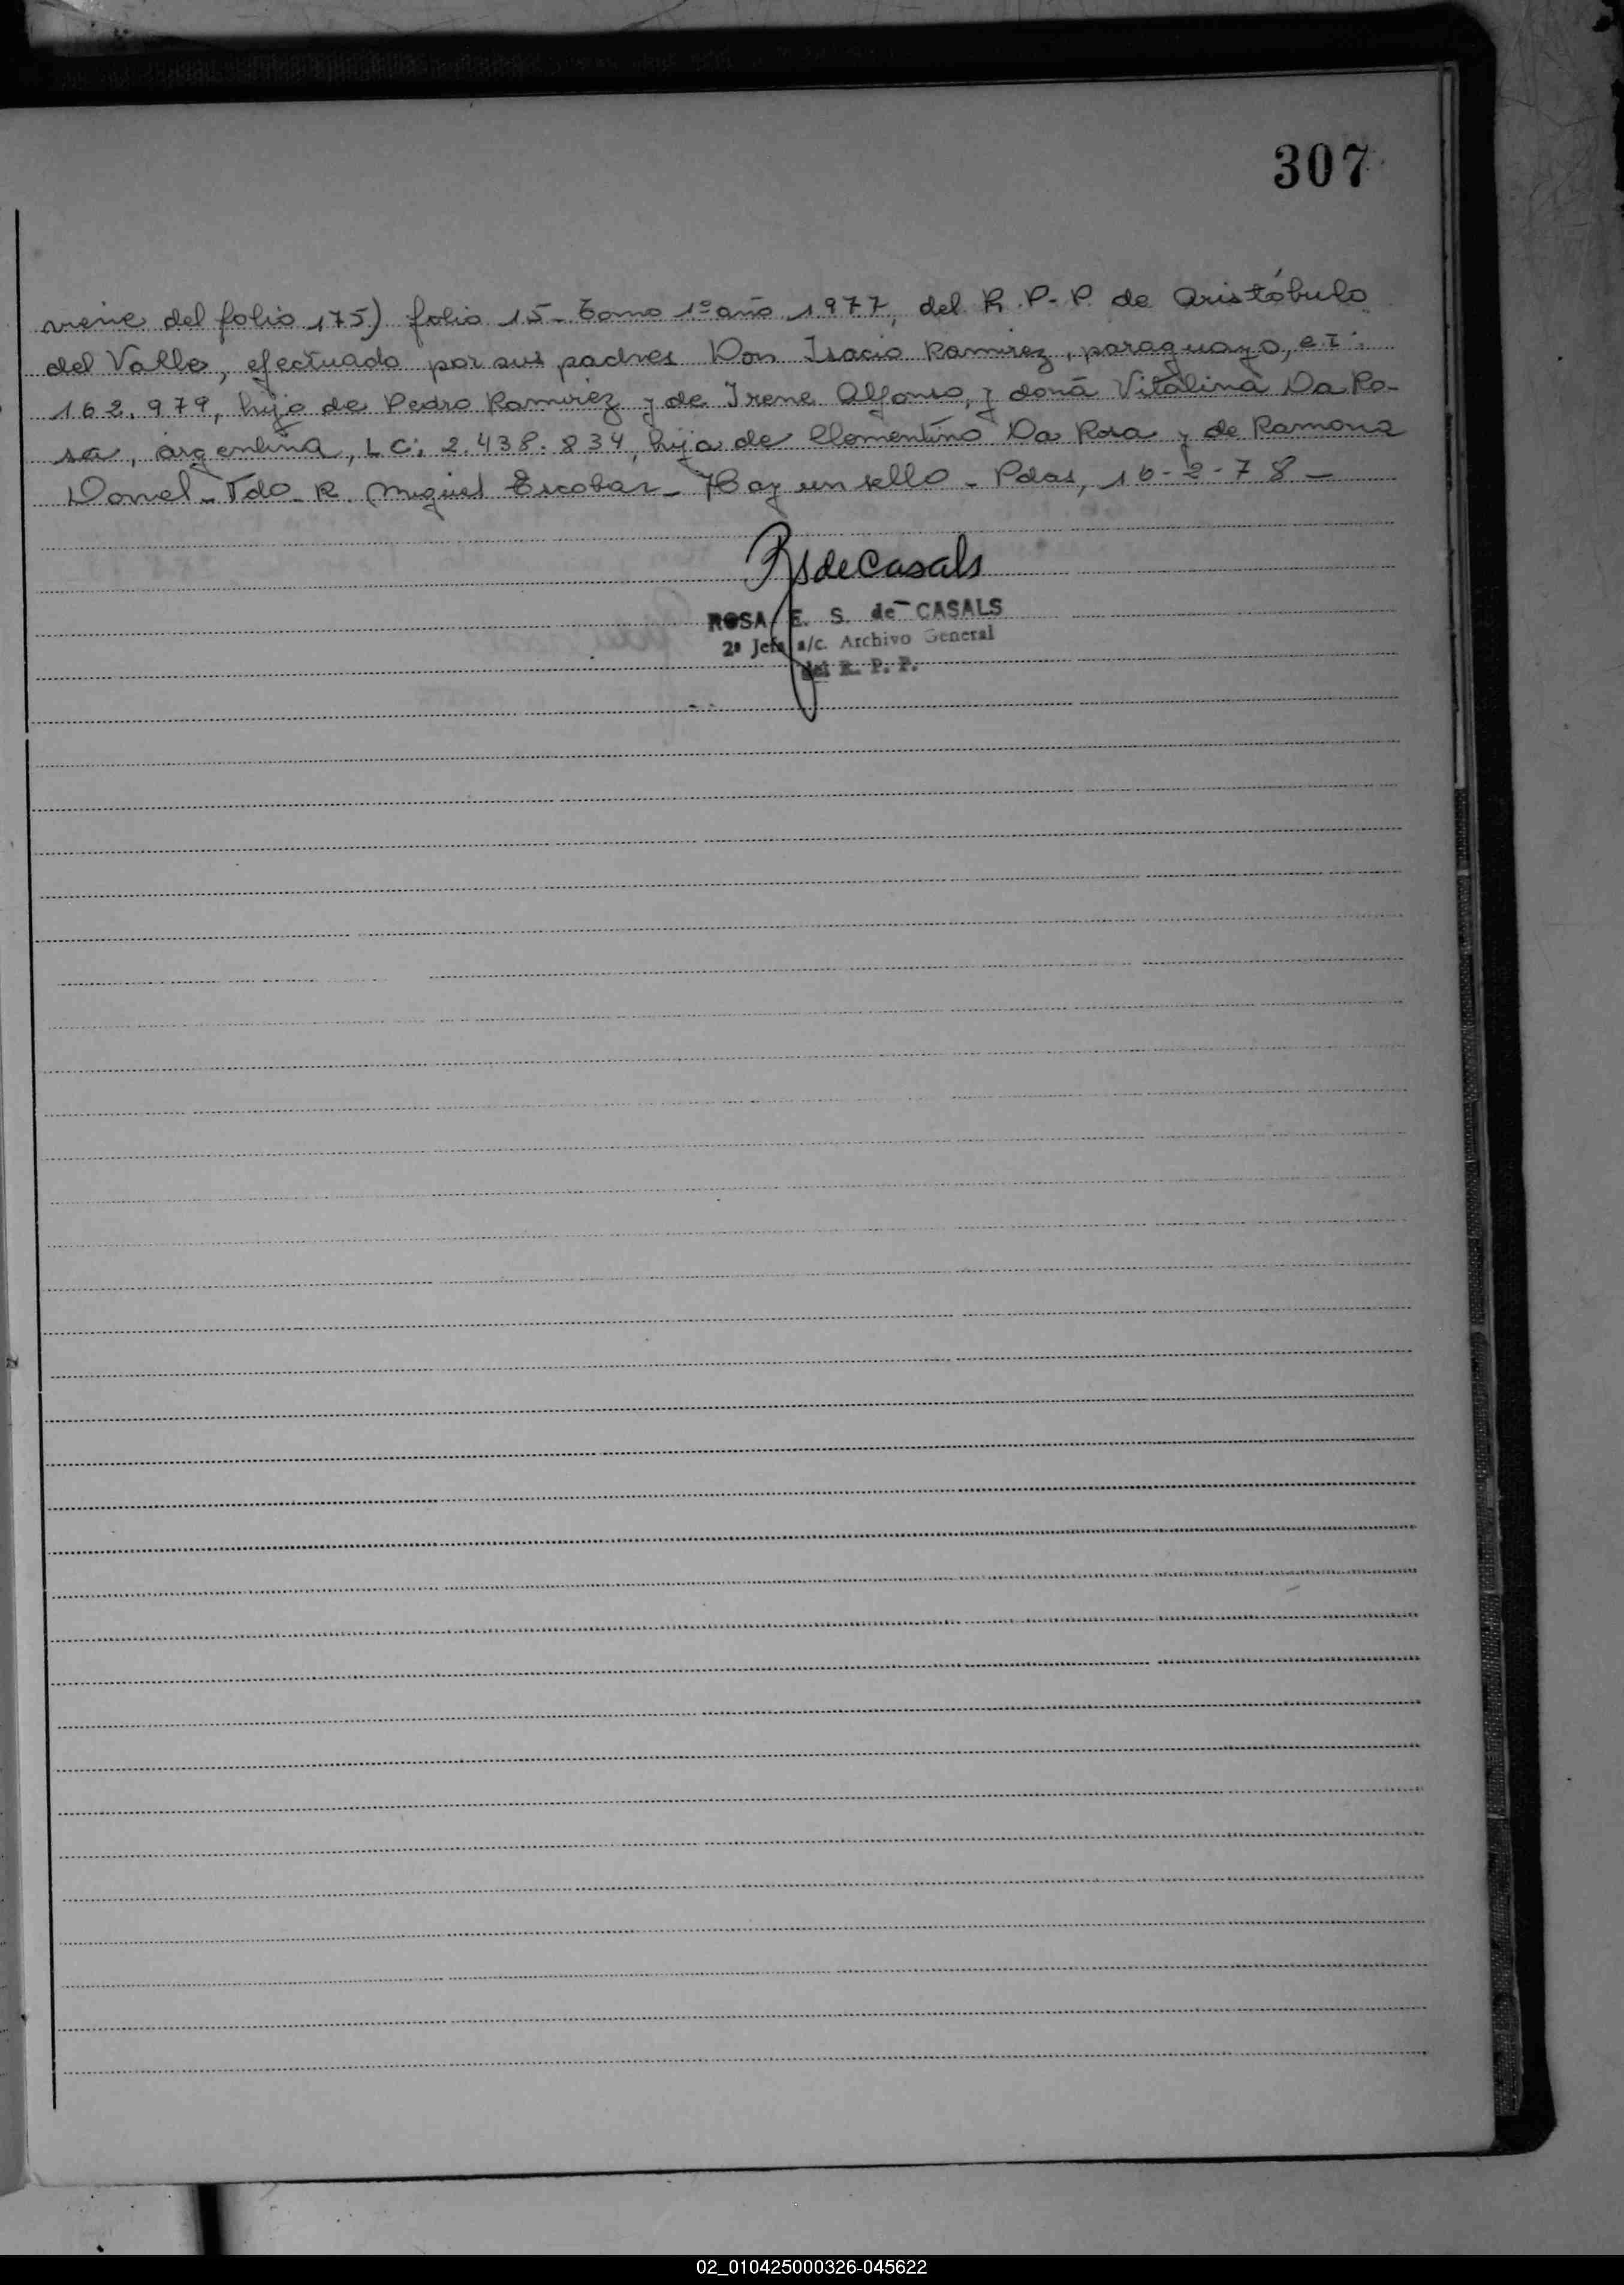 307
viene del folio 175) folio 15 - Tomo 1º año 1977, del R. P. P. de Aristóbulo
del Valle, efectuado por sus padres Don Isacio Ramirez, paraguayo, C.I:
162.979, hijo de Pedro Ramirez y de Irene Alfonso, y doña Vitalina Da Ro-
sa, argentina, L C: 2.438.834, hija de Clementino Da Rosa y de Ramona
Dornel - Fdo - R. Miguel Escobar - Hay un sello - Pdas, 16-2-78 -
RSdeCasals
ROSA E. S. de CASALS
2ª Jefa a/c. Archivo General
del R. P. P.
02_010425000326-045622